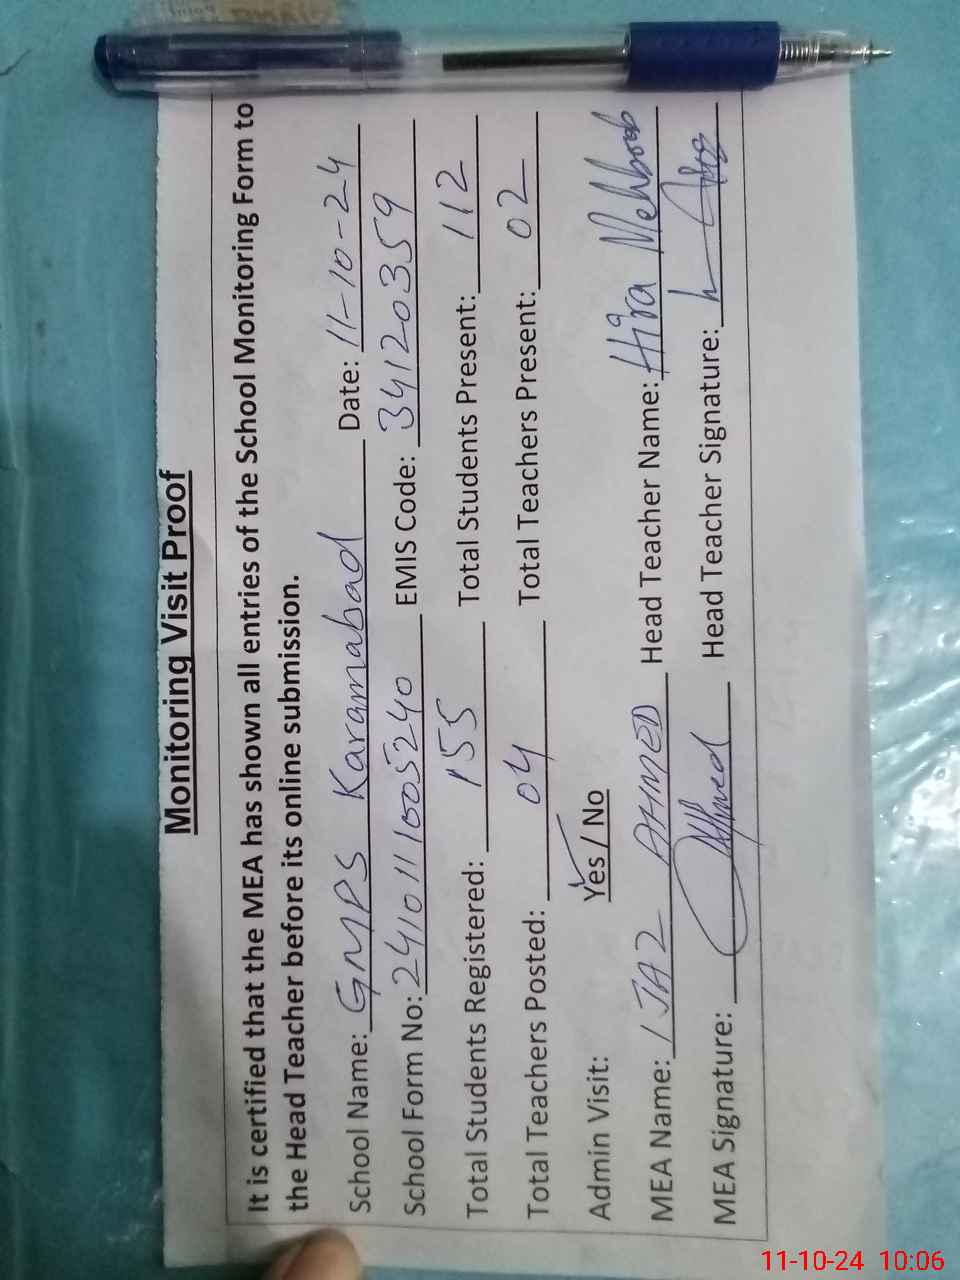 Monitoring Visit Proof
It is certified that the MEA has shown all entries of the School Monitoring Form to
the Head Teacher before its online submission.
School Name: GMPS Karamabad Date: 11-10-24
School Form No: 2410111005240 EMIS Code: 34120359
Total Students Registered: 155 Total Students Present: 112
Total Teachers Posted: 04 Total Teachers Present: 02
Admin Visit: Yes / No
MEA Name: IJAZ AHMED Head Teacher Name: Hira Mehboob
MEA Signature: Ahmed Head Teacher Signature:
11-10-24 10:06